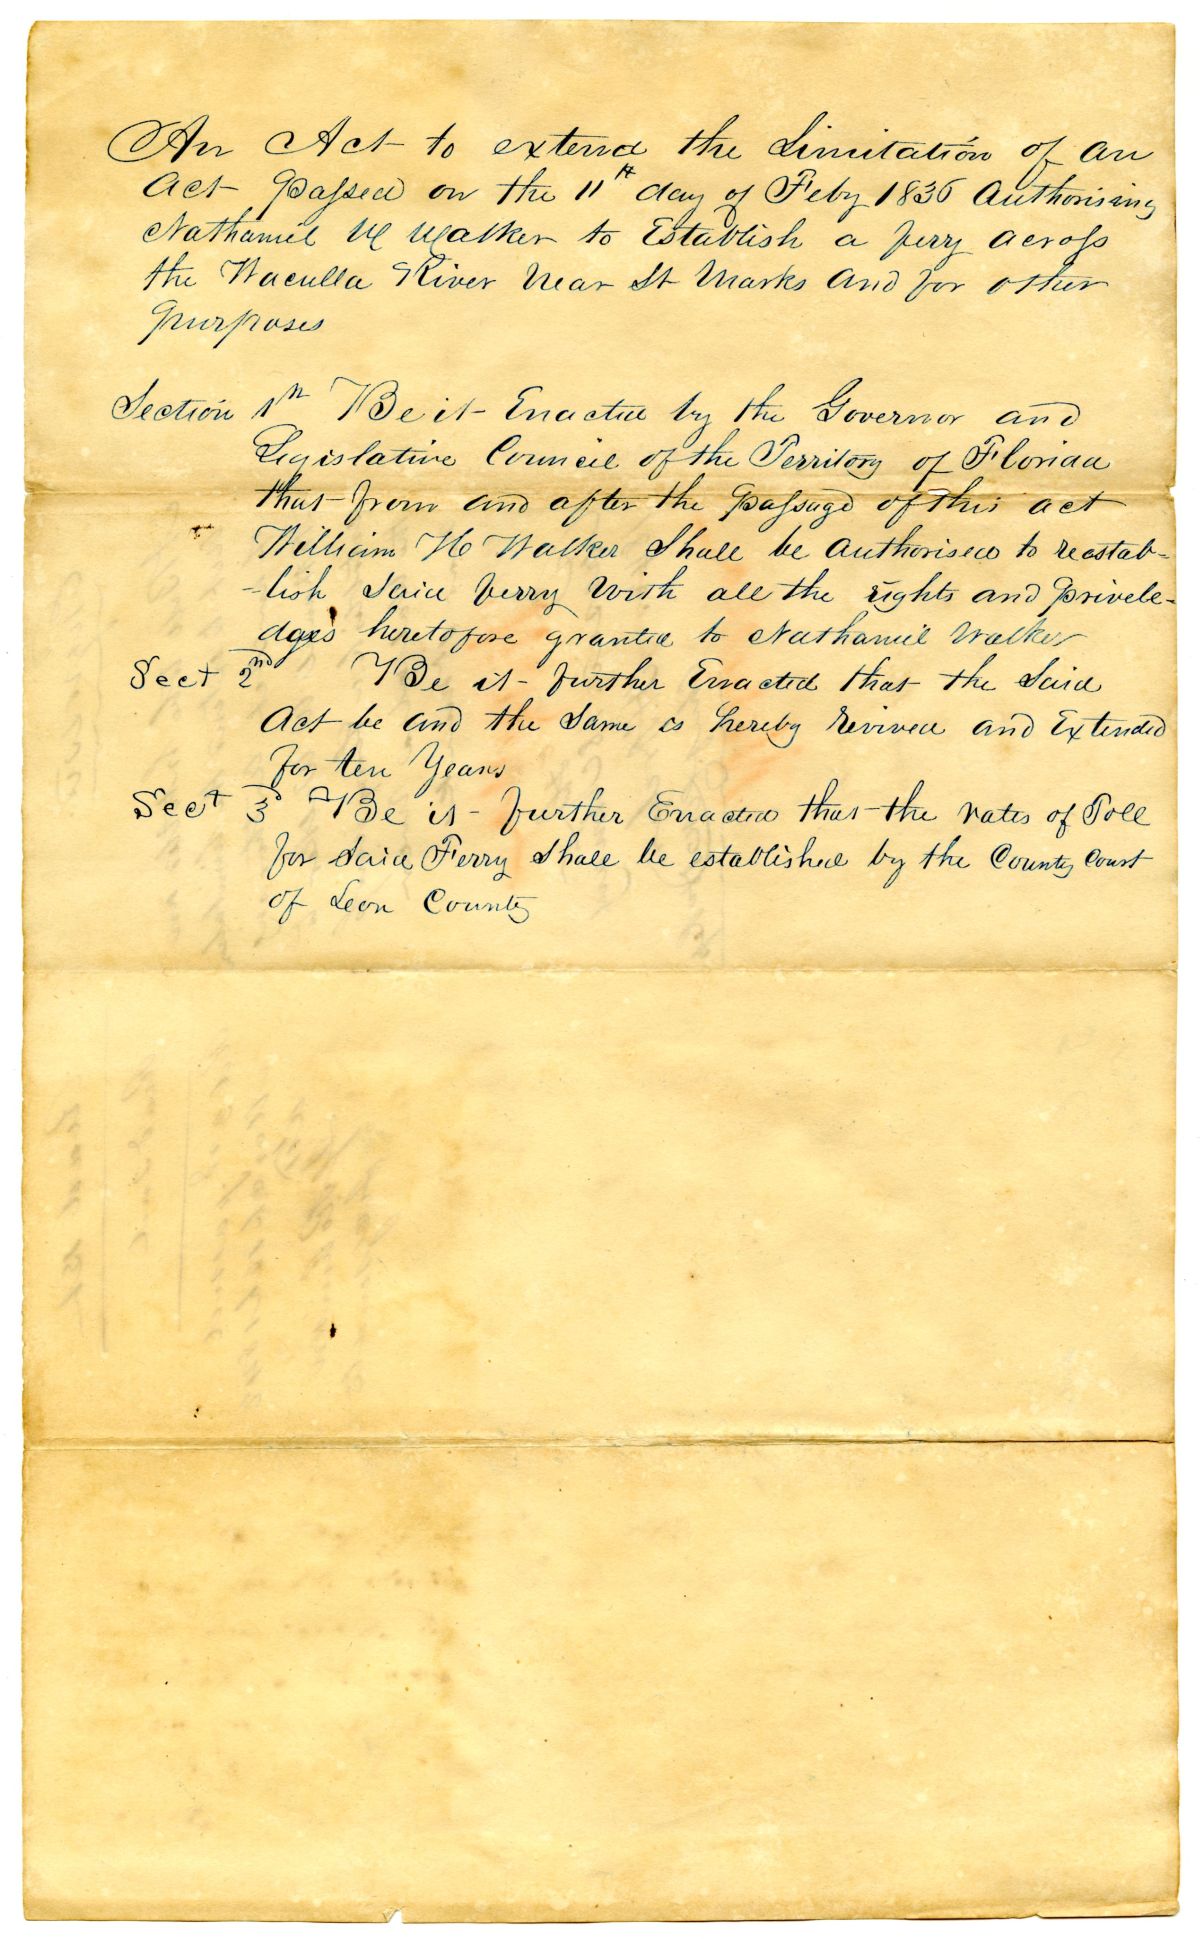 An Act to extend the Limitation of an
Act Passed on the 11th day of Feby 1836 Authorising
Nathaniel W Walker to Establish a ferry across
the Waculla River Near St Marks and for other
purposes
Section 1st Be it Enacted by the Governor and
Legislative Council of the Territory of Florida
that from and after the Passage of this act
William H Walker Shall be Authorised to reestab-
-lish Said ferry With all the rights and Privele-
dges heretofore granted to Nathaniel Walker
Sect 2nd Be it further Enacted that the Said
Act be and the Same is hereby revived and Extended
for ten Years
Sect 3d Be it further Enacted that the rates of Toll
for Said Ferry Shall be established by the County Court
of Leon County